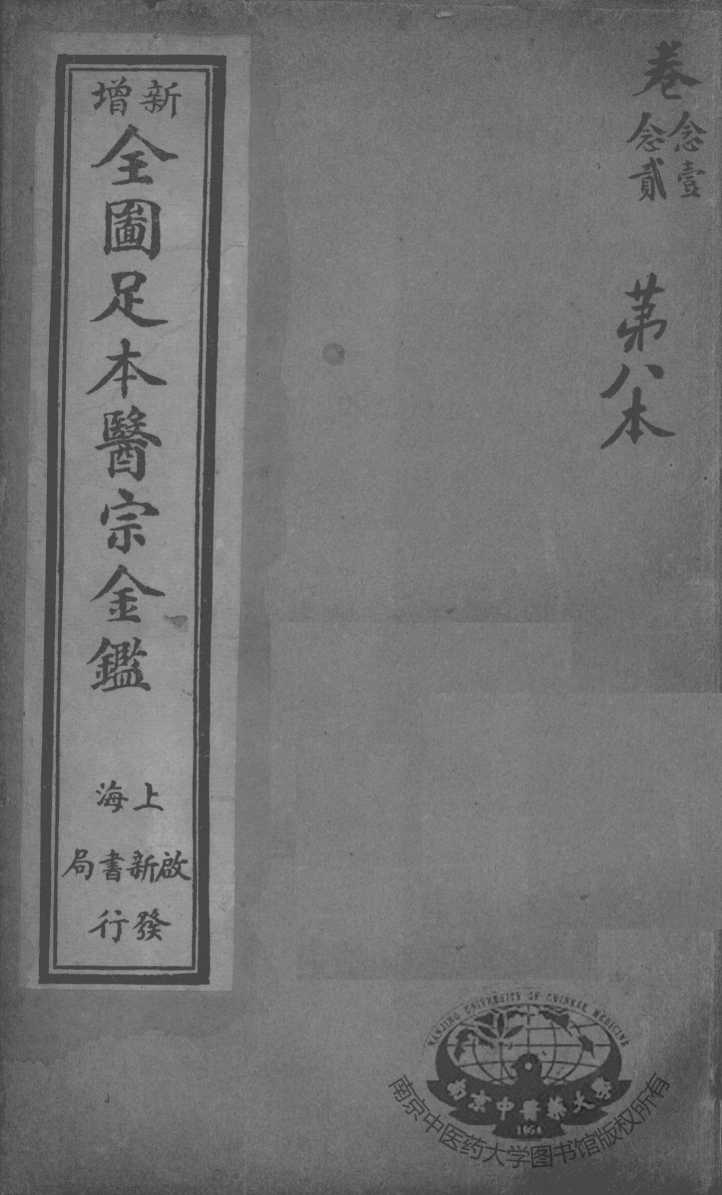 卷
念壹
念貳
第八本
新增
全圖足本醫宗金鑑
上海
啟新書局
發行
NANJING UNIVERSITY OF CHINESE MEDICINE
南京中醫藥大學
1954
南京中医药大学图书馆版权所有